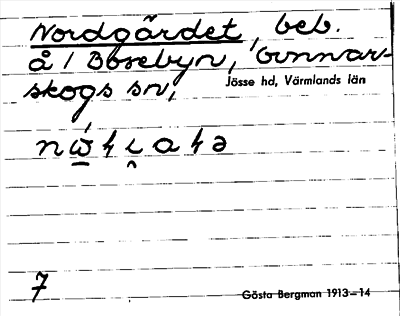 Nordgärdet, beb.
å / Bösebyn, Gunnar-
skogs sn,
Jösse hd, Värmlands län
7
Gösta Bergman 1913—14